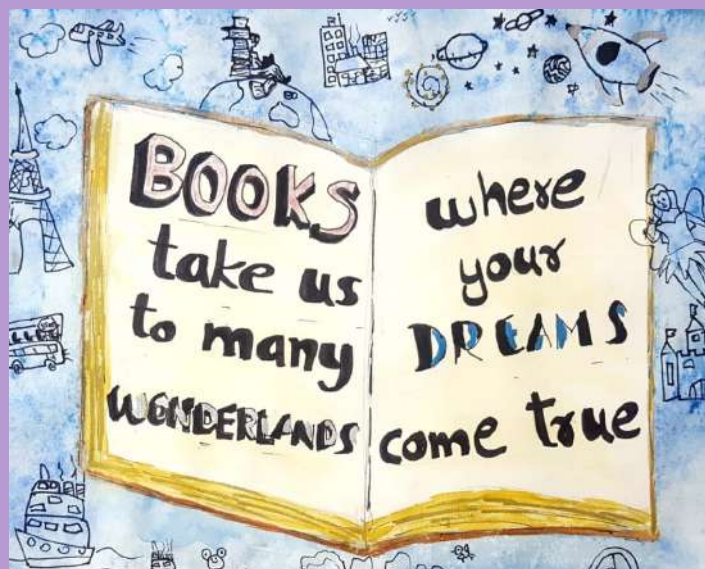 BOOKS
take us
to many
WONDERLANDS
where
your
DREAMS
come true